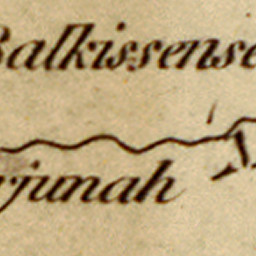 Balkissense
rjunah